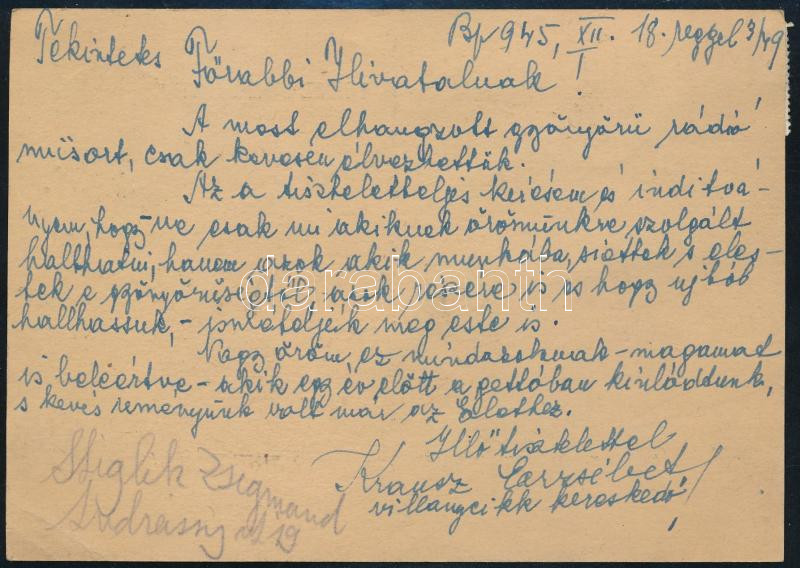 Bp 945, XII. 18. reggel 3/49
I
Tekintetes Főrabbi Hivatalnak!
A most elhangzott gyönyörü rádió
müsort, csak kevesen élvezhették.
Az a tiszteletteljes kérésem és inditvá-
nyom, hogy ne csak mi akiknek örömünkre szolgált
hallhatni, hanem azok akik munkába, siettek s eles-
tek e gyönyörüségtől, azok részére is és hogy ujból
hallhassuk, - ismételjék meg este is.
Nagy öröm ez mindazoknak - magamat
is beleértve - akik egy év előtt a gettóban kinlódtunk,
s kevés reményünk volt már az Élethez.
Illő tisztelettel
Krausz Erzsébet
villanycikk kereskedő
Stiglik Zsigmond
Andrássy út 19
darabanth